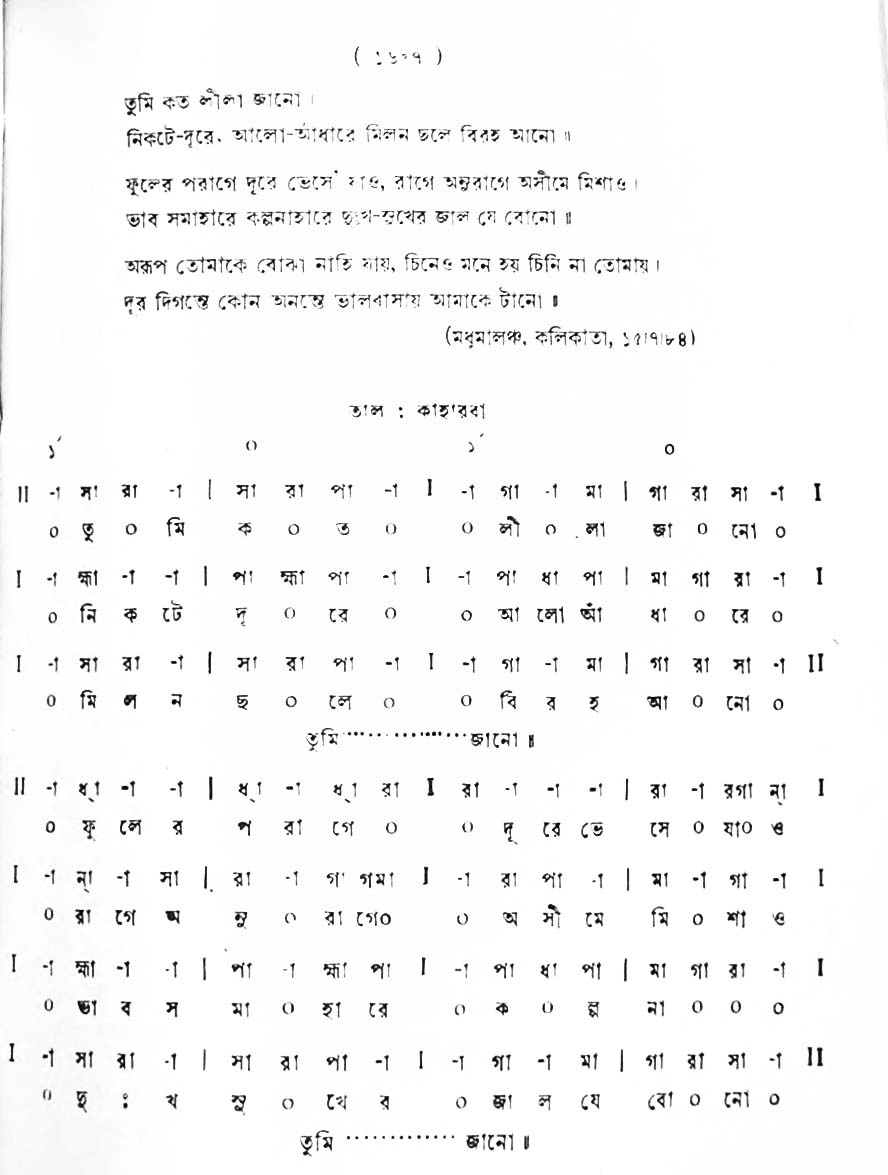 ( ১৬০৭ )
তুমি কত লীলা জানো ।
নিকটে-দূরে, আলো-আঁধারে মিলন ছলে বিরহ আনো ॥
ফুলের পরাগে দূরে ভেসে যাও, রাগে অনুরাগে অসীমে মিশাও ।
ভাব সমাহারে কল্পনাহারে দুঃখ-সুখের জাল যে বোনো ॥
অরূপ তোমাকে বোঝা নাহি যায়, চিনেও মনে হয় চিনি না তোমায় ।
দূর দিগন্তে কোন অনন্তে ভালবাসায় আমাকে টানো ॥
(মধুমালঞ্চ, কলিকাতা, ১৫।৭।৮৪)
তাল : কাহারবা
১´ ০ ১´ ০
II -া সা রা -া | সা রা পা -া I -া গা -া মা | গা রা সা -া I
০ তু ০ মি ক ০ ত ০ ০ লী ০ লা জা ০ নো ০
I -া হ্মা -া -া | পা হ্মা পা -া I -া পা ধা পা | মা গা রা -া I
০ নি ক টে দূ ০ রে ০ ০ আ লো আঁ ধা ০ রে ০
I -া সা রা -া | সা রা পা -া I -া গা -া মা | গা রা সা -া II
০ মি ল ন ছ ০ লে ০ ০ বি র হ আ ০ নো ০
তুমি ············· জানো ॥
II -া ধ্া -া -া | ধ্া -া ধ্া রা I রা -া -া -া | রা -া রগা ন্া I
০ ফু লে র প রা গে ০ ০ দূ রে ভে সে ০ যা০ ও
I -া ন্া -া সা | রা -া গা গমা I -া রা পা -া | মা -া গা -া I
০ রা গে অ নু ০ রা গে০ ০ অ সী মে মি ০ শা ও
I -া হ্মা -া -া | পা -া হ্মা পা I -া পা ধা পা | মা গা রা -া I
০ ভা ব স মা ০ হা রে ০ ক ০ ল্প না ০ ০ ০
I -া সা রা -া | সা রা পা -া I -া গা -া মা | গা রা সা -া II
০ দু ঃ খ সু ০ খে র ০ জা ল যে বো ০ নো ০
তুমি ············· জানো ॥